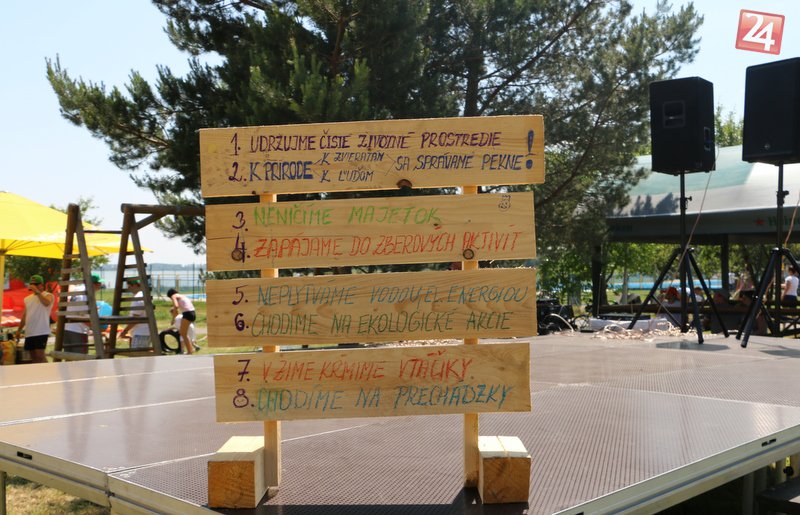 24
1. UDRŽUJME ČISTÉ ŽIVOTNÉ PROSTREDIE !
2. K PRÍRODE K ZVIERATÁM SA SPRÁVAME PEKNE
K ĽUĎOM
3. NENIČÍME MAJETOK
4. ZAPÁJAME DO ZBEROVÝCH AKTIVÍT
5. NEPLYTVÁME VODOU, EL. ENERGIOU
6. CHODÍME NA EKOLOGICKÉ AKCIE
7. V ZIME KŔMIME VTÁČIKY.
8. CHODÍME NA PRECHÁDZKY